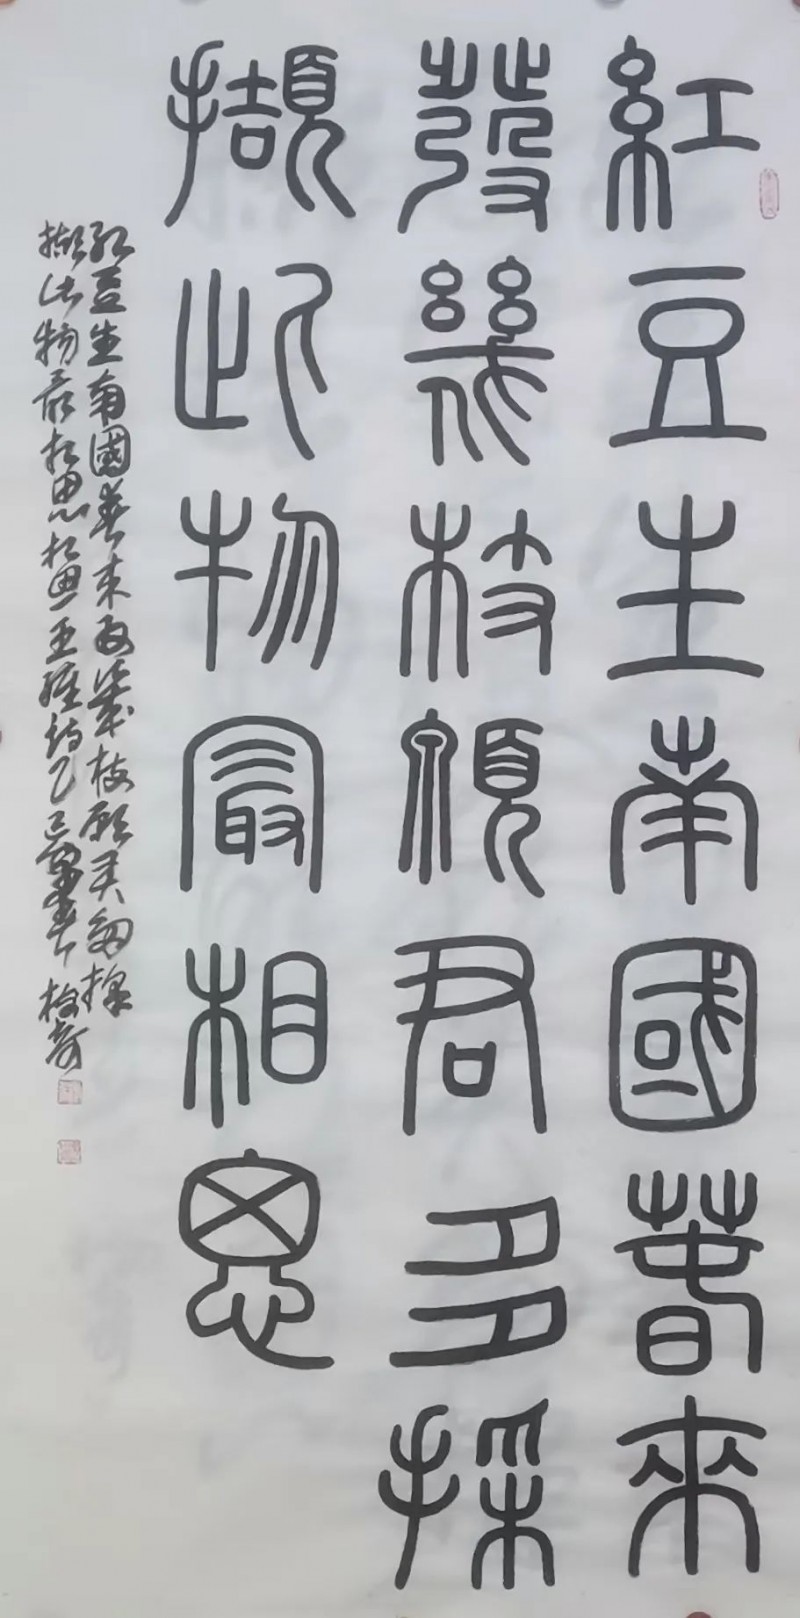 紅豆生南國春來
發幾枝願君多採
擷此物最相思
紅豆生南國春來發幾枝願君多採
擷此物最相思 相思 王維詩 乙巳